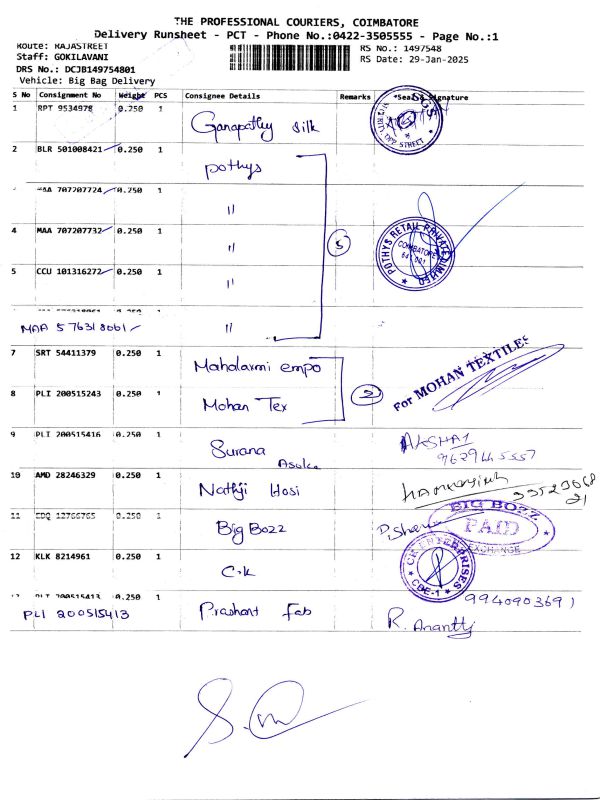 THE PROFESSIONAL COURIERS, COIMBATORE
Delivery Runsheet - PCT - Phone No.:0422-3505555 - Page No.:1
Route: RAJASTREET
RS No.: 1497548
Staff: GOKILAVANI
RS Date: 29-Jan-2025
DRS No.: DCJB149754801
Vehicle: Big Bag Delivery
S No Consignment No Weight PCS Consignee Details Remarks Seal & Signature
1 RPT 9534978 0.250 1 Ganapathy silk SGS
OPP STREET
2 BLR 501008421 0.250 1 pothys
MAA 707207724 0.250 1 "
4 MAA 707207732 0.250 1 " 5 POTHYS RETAIL PRIVATE LIMITED
COIMBATORE
641 001
5 CCU 101316272 0.250 1 "
MAA 576318061 "
7 SRT 54411379 0.250 1 Mahalaxmi empo
For MOHAN TEXTILES
8 PLI 200515243 0.250 1 Mohan Tex 2
9 PLI 200515416 0.250 1 Surana Asoka AKSHAI
9629445557
10 AMD 28246329 0.250 1 Nathji Hosi
11 EDQ 12766765 0.250 1 Big Bozz BIG BOZZ
PAID
EXCHANGE
12 KLK 8214961 0.250 1 C.K CK ENTERPRISES
CBE-1
PLI 200515413 0.250 1 Prashant Fab 9940903691
PLI 200515413
R. Ananth